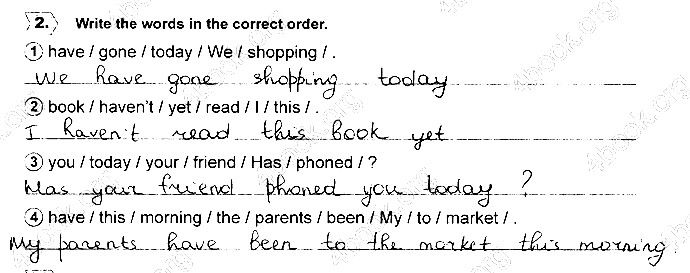 2. Write the words in the correct order.
1 have / gone / today / We / shopping / .
We have gone shopping today
2 book / haven't / yet / read / I / this / .
I haven't read this book yet
3 you / today / your / friend / Has / phoned / ?
Has your friend phoned you today ?
4 have / this / morning / the / parents / been / My / to / market / .
My parents have been to the market this morning.